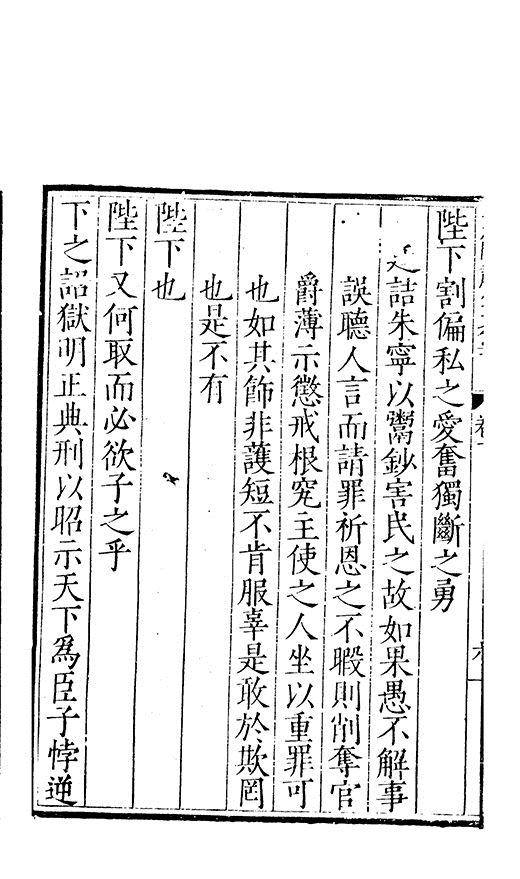 陛下割偏私之愛奮獨斷之勇
詰朱寧以鬻鈔害民之故如果愚不解事
誤聽人言而請罪祈恩之不暇則削奪官
爵薄示懲戒根究主使之人坐以重罪可
也如其飾非護短不肯服辜是敢於欺罔
也是不有
陛下也
陛下又何取而必欲子之乎
下之詔獄明正典刑以昭示天下為臣子悖逆